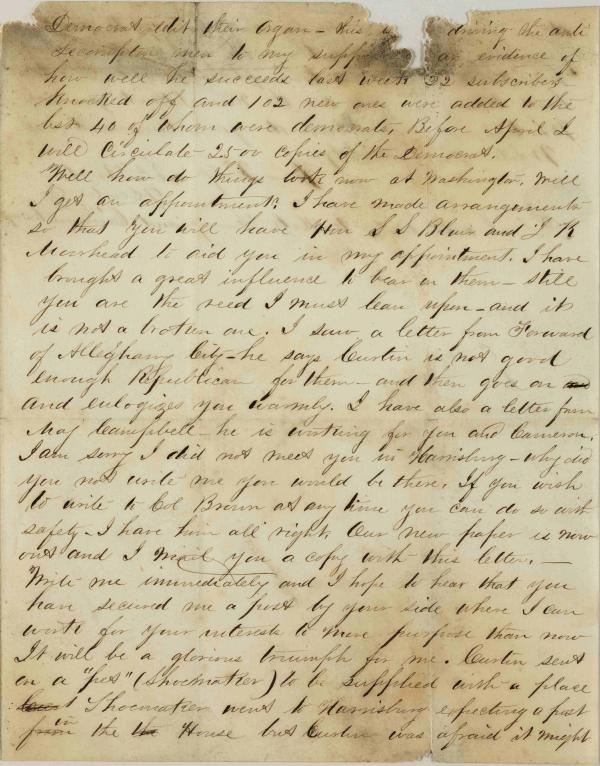 Democrat edit their organ – this is driving the anti
Lecompton men to my support as an evidence of
how well he succeeds last week 32 subscribers
knocked off and 102 new ones were added to the
list 40 of whom were democrats, Before April I
will circulate 2500 copies of the Democrat.
Well how do things look now at Washington. Will
I get an appointment? I have made arrangements
so that you will have Hon S S Blair and J K
Moorhead to aid you in my appointment. I have
brought a great influence to bear on them – still
you are the reed I must lean upon – and it
is not a broken one. I saw a letter from Forward
of Allegheny City – he says Curtin is not good
enough Republican for them – and then goes on
and eulogizes you warmly. I have also a letter from
Maj Campbell – he is working for you and Cameron.
I am sorry I did not meet you in Harrisburg – why did
you not write me you would be there. If you wish
to write to Col Brown at any time you can do so with
safety – I have him all right. Our new paper is now
out and I mail you a copy with this letter. —
Write me immediately and I hope to hear that you
have secured me a post by your side where I can
work for your interests to more purpose than now
It will be a glorious triumph for me. Curtin sent
on a "pet" (Shoemaker) to be supplied with a place
Shoemaker went to Harrisburg expecting a post
in the House but Curtin was afraid it might